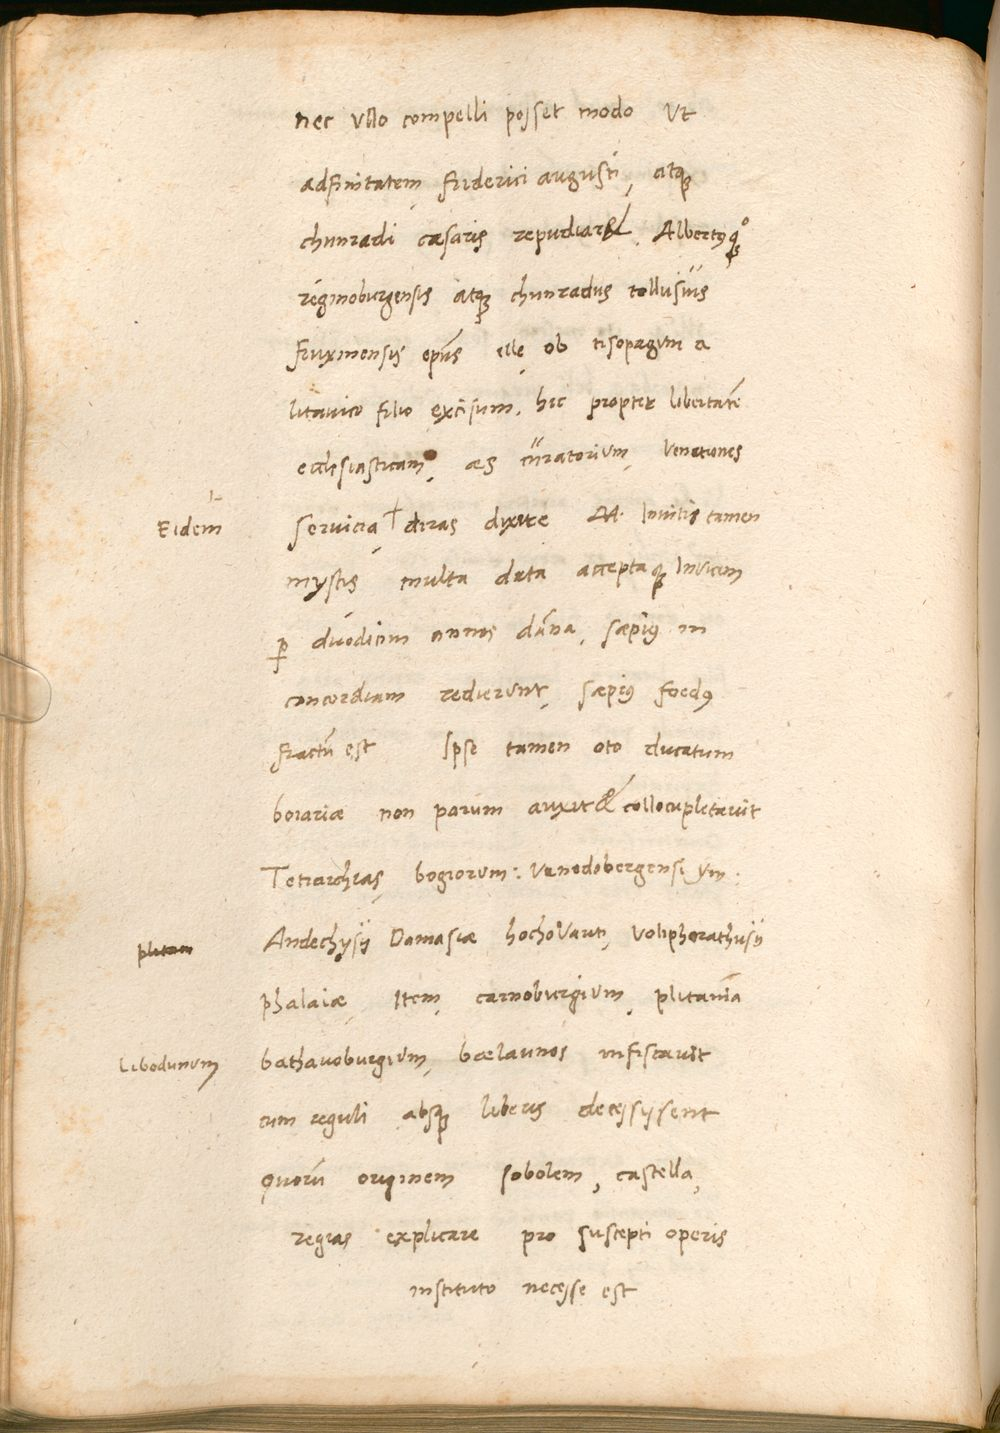 nec vllo compelli posset modo Vt
adfinitatem friderici augusti, atqꝫ
chunradi cæsaris repudiar&, Albertꝰqꝫ
reginoburgensis atqꝫ chunradus tollusius
fruxinensis ep̄us ille, ob tisopagum a
litauico filio excisum, hic propter libertatē
ecclesiasticam, æs curatorium, venationes
Eidem
servicia † diras dixere M. Inuitis tamen
mystis multa data acceptaqꝫ Inuicem
ꝑ duodicim annos dāna, sæpiꝰ in
concordiam redierunt, sæpiꝰ foedꝰ
fractū est Ipse tamen oto ducatum
boiariæ non parum auxit & collocupletauit
Tetrarchias bogiorum: Vanodobergensiym:
plitan
Andechysij Damasiæ hochoVarti, voliphorathusij
phalaiæ Item, carnoburgium, plitaniā
Libodunum
bathauoburgium, bælaunos infiscauit
cum reguli absqꝫ liberis decessissent
quorū originem sobolem, castella,
regias explicare pro suscepti operis
instituto necesse est